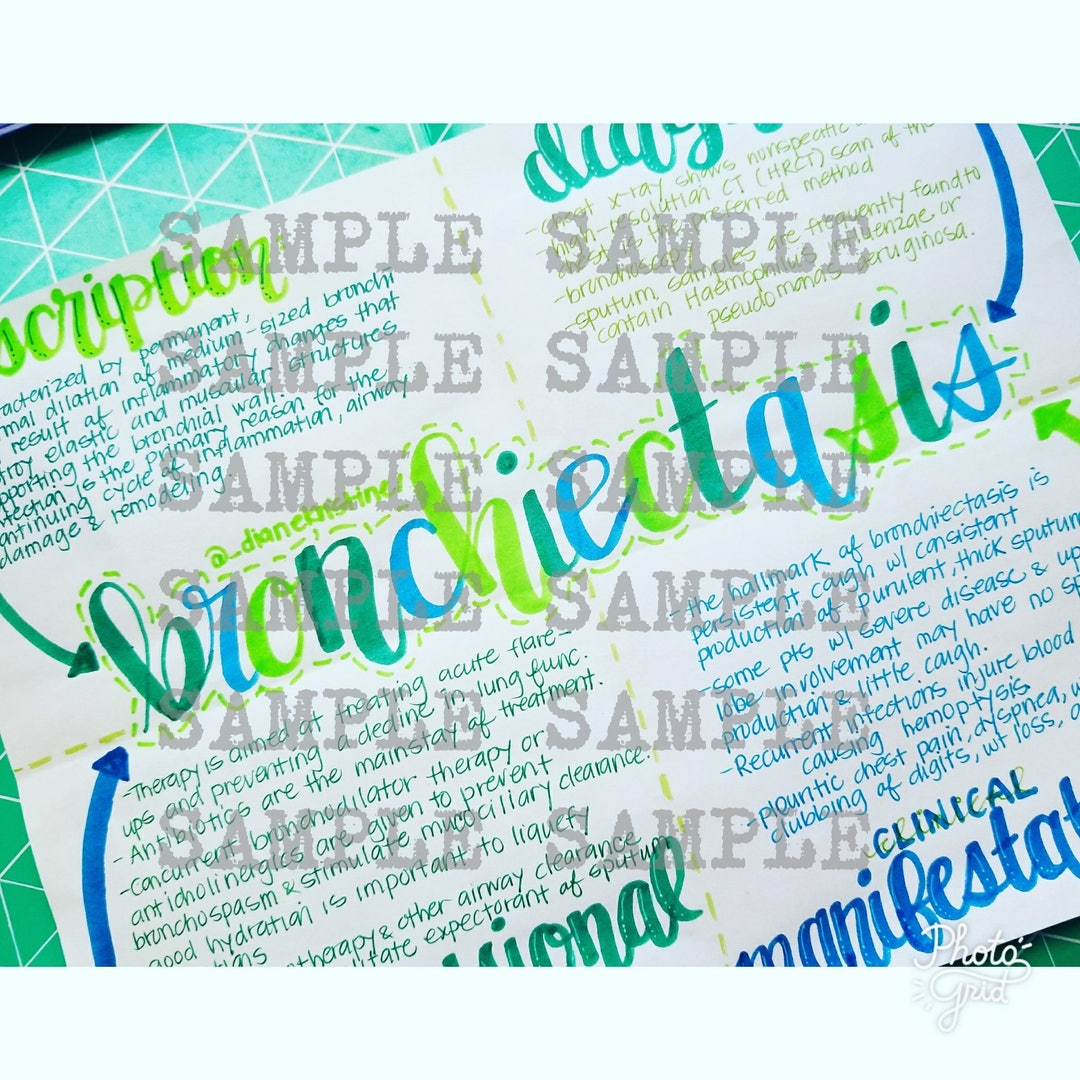 scription
permanent,
dilation of medium-sized bronchi
result of inflammatory changes that
elastic and muscular structures
the bronchial wall.
is the primary reason for the
cycle of inflammation, airway
damage & remodeling.
x-ray shows nonspecific
- high-resolution CT (HRCT) scan of the
chest is the preferred method
- bronchoscopy
- sputum samples are frequently found to
contain Haemophilus influenzae or
pseudomonas aeruginosa.
@_dianekristine
bronchiectasis
- Therapy is aimed at treating acute flare-
ups and preventing a decline in lung func.
- Antibiotics are the mainstay of treatment.
- Concurrent bronchodilator therapy or
anticholinergics are given to prevent
bronchospasm & stimulate mucociliary clearance.
good hydration is important to liquefy
therapy & other airway clearance
expectorant of sputum
- the hallmark of bronchiectasis is
persistent cough w/ consistent
production of purulent, thick sputum
- some pts w/ severe disease &
lobe involvement may have no
production & little cough.
- Recurrent infections injure blood
causing hemoptysis
- plountic chest pain, dyspnea,
clubbing of digits, wt loss,
CLINICAL
manifestat
SAMPLE SAMPLE
SAMPLE SAMPLE
SAMPLE SAMPLE
SAMPLE SAMPLE
SAMPLE SAMPLE
SAMPLE SAMPLE
Photo
Grid